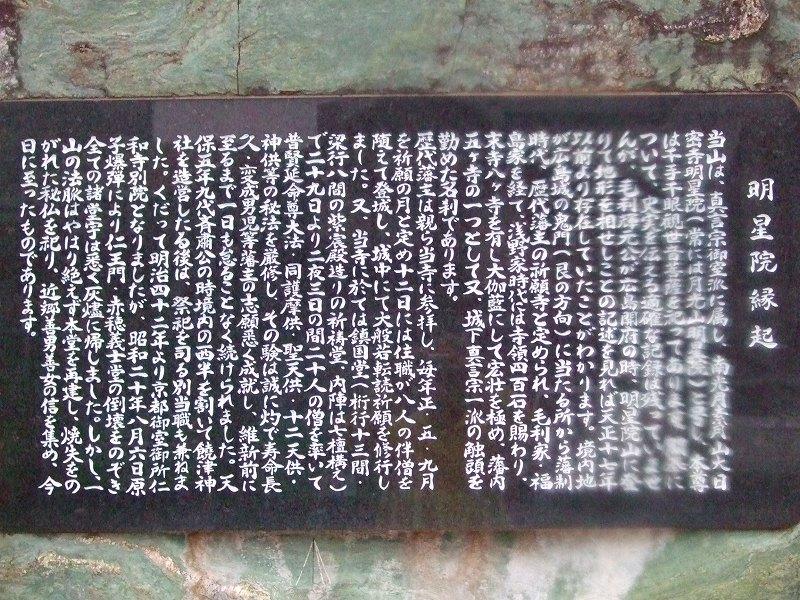 明星院縁起
当山は、真言宗御室派に属し、
密寺明星院(常には月光山明星院)と号し、本尊
は千手千眼観世音菩薩を祀ってあります。
ついて、史実を伝える適確な記録は残っていませ
んが、毛利輝元公が広島開府の時、明星院山に登
りて地形を相せしことの記述を見れば天正十七年
以前より存在していたことがわかります。境内地
が広島城の鬼門(艮の方向)に当たる所から藩制
時代、歴代藩主の祈願寺と定められ、毛利家・福
島家を経て、浅野家時代には寺領四百石を賜わり、
末寺八ヶ寺を有し大伽藍にして宏壮を極め、藩内
五ヶ寺の一つとして又、城下真言宗一派の触頭を
勤めた名刹であります。
歴代藩主は親ら当寺に参拝し、毎年正・五・九月
を祈願の月と定め十二日には住職が八人の伴僧を
随えて登城し、城中にて大般若転読祈願を修行し
ました。又、当寺に於ては鎮国堂(桁行十三間・
梁行八間の紫宸殿造りの祈祷堂、内陣は十檀構え)
で二十九日より二夜三日の間二十人の僧を率いて
普賢延命尊大法、同護摩供・聖天供・十二天供・
神供等の秘法を厳修し、その験は誠に灼で寿命長
久・変成男児等藩主の志願悉く成就し、維新前に
至るまで一日も怠ることなく続けられました。天
保五年九代斉粛公の時境内の西半を割いて饒津神
社を造営したる後は、祭祀を司る別当職も兼ねま
した。くだって明治四十二年より京都御室御所仁
和寺別院となりましたが、昭和二十年八月六日原
子爆弾により仁王門、赤穂義士堂の倒壊をのぞき
全ての諸堂宇は悉く灰燼に帰しました。しかし、一
山の法脈はやはり絶えず本堂を再建し、焼失をの
がれた秘仏を祀り、近郷善男善女の信を集め、今
日に至ったものであります。